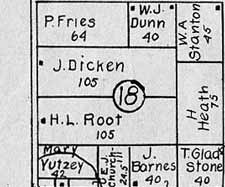 P. Fries
64
W.J.
Dunn
40
W.A
Stanton
45
J. Dicken
105
18
H
Heath
75
H. L. Root
105
Mary
Yutzey
42
E.J.
Church
24.5
J.
Barnes
40
T. Glad
Stone
40